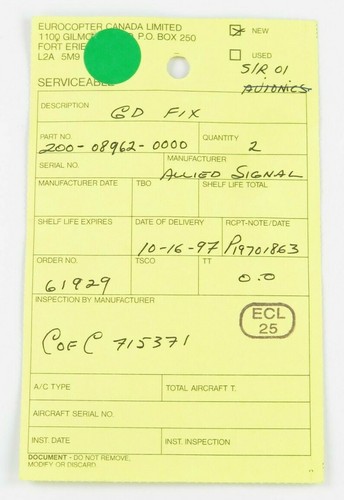 EUROCOPTER CANADA LIMITED
1100 P.O. BOX 250
FORT ERIE
L2A 5M9
NEW
USED
S/R 01
AVIONICS
SERVICEABLE
DESCRIPTION
GD FIX
PART NO. QUANTITY
200-08962-0000 2
SERIAL NO. MANUFACTURER
ALLIED SIGNAL
MANUFACTURER DATE TBO SHELF LIFE TOTAL
SHELF LIFE EXPIRES DATE OF DELIVERY RCPT-NOTE/DATE
10-16-97 P19701863
ORDER NO. TSCO TT
61929 0.0
INSPECTION BY MANUFACTURER
ECL
25
C OF C 715371
A/C TYPE TOTAL AIRCRAFT T.
AIRCRAFT SERIAL NO.
INST. DATE INST. INSPECTION
DOCUMENT - DO NOT REMOVE,
MODIFY OR DISCARD